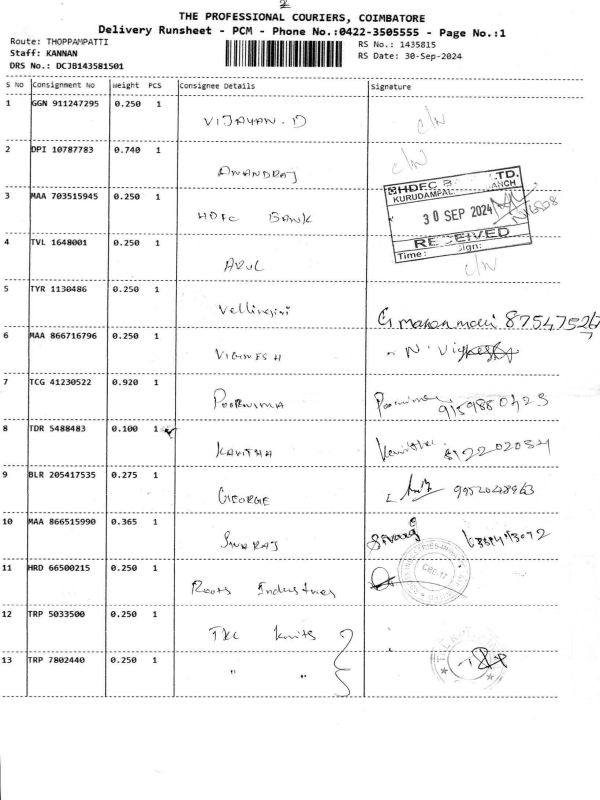 THE PROFESSIONAL COURIERS, COIMBATORE
Delivery Runsheet - PCM - Phone No.:0422-3505555 - Page No.:1
Route: THOPPAMPATTI
RS No.: 1435815
Staff: KANNAN
RS Date: 30-Sep-2024
DRS No.: DCJB143581501
S No Consignment No Weight PCS Consignee Details Signature
1 GGN 911247295 0.250 1
VIJAYAN.D C/N
2 DPI 10787783 0.740 1
ANANDRAJ C/N
HDFC B LTD.
KURUDAMPAL ANCH
3 MAA 703515945 0.250 1
HDFC BANK
30 SEP 2024
RECEIVED
Time: Sign:
4 TVL 1648001 0.250 1
ARUL C/N
5 TYR 1130486 0.250 1
Vellingiri
6 MAA 866716796 0.250 1
VIGNESH N.
7 TCG 41230522 0.920 1
POORNIMA
8 TDR 5488483 0.100 1
KAVITHA
9 BLR 205417535 0.275 1
GEORGE
10 MAA 866515990 0.365 1
11 HRD 66500215 0.250 1
Roots Industries
12 TRP 5033500 0.250 1
TKL Knits
13 TRP 7802440 0.250 1
" "